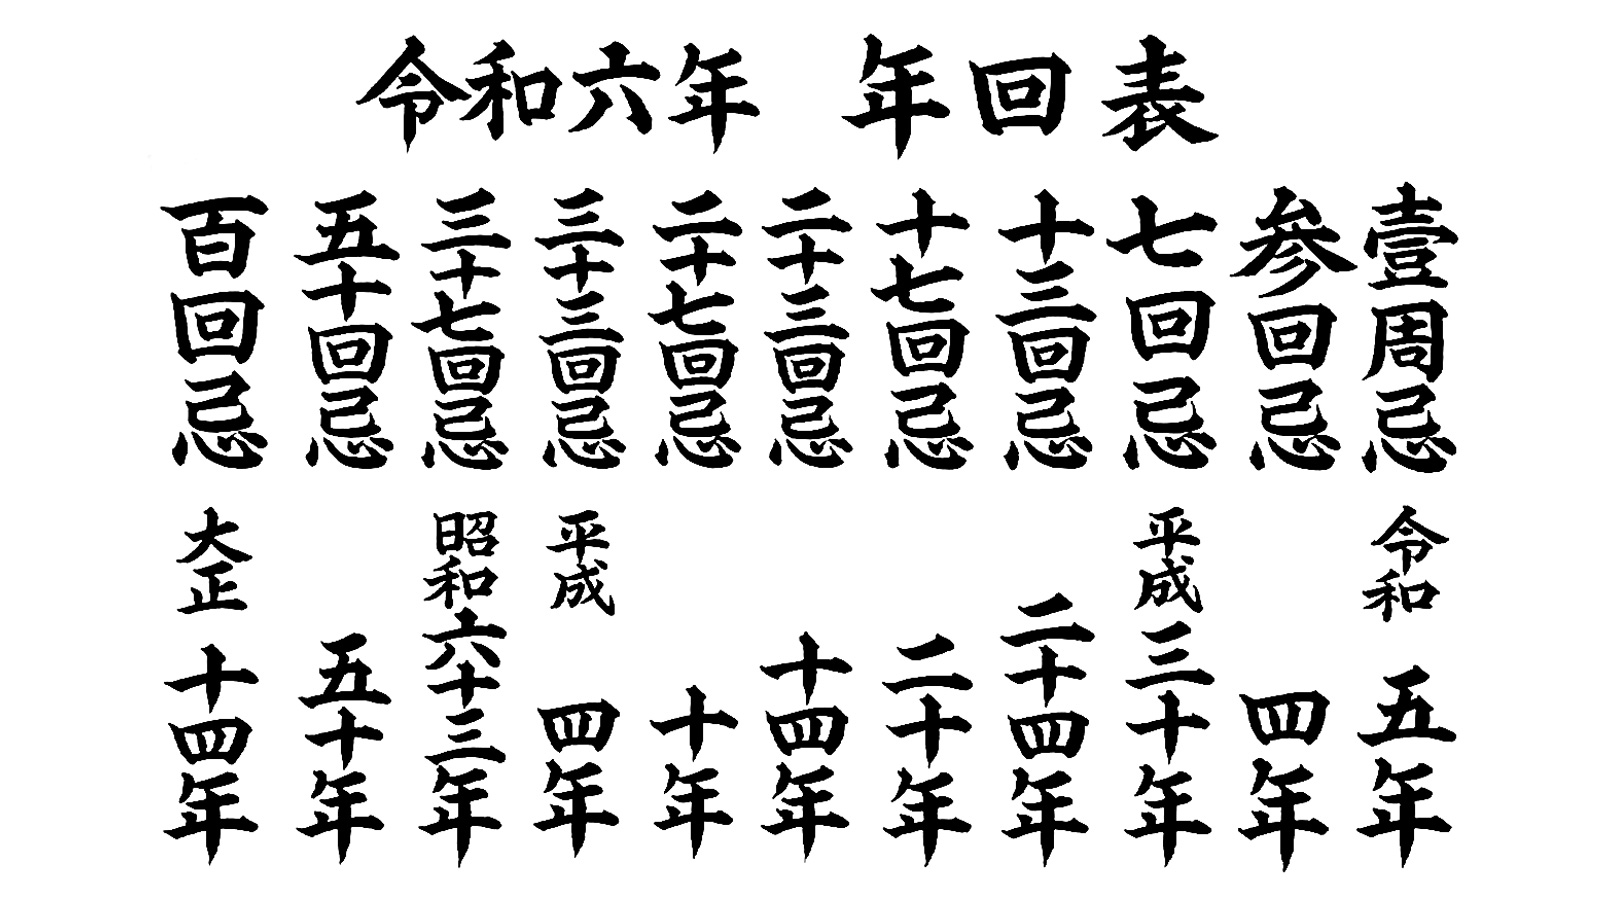 令和六年 年回表
壹周忌 令和 五年
参回忌 四年
七回忌 平成三十年
十三回忌 二十四年
十七回忌 二十年
二十三回忌 十四年
二十七回忌 十年
三十三回忌 平成 四年
三十七回忌 昭和六十三年
五十回忌 五十年
百回忌 大正 十四年